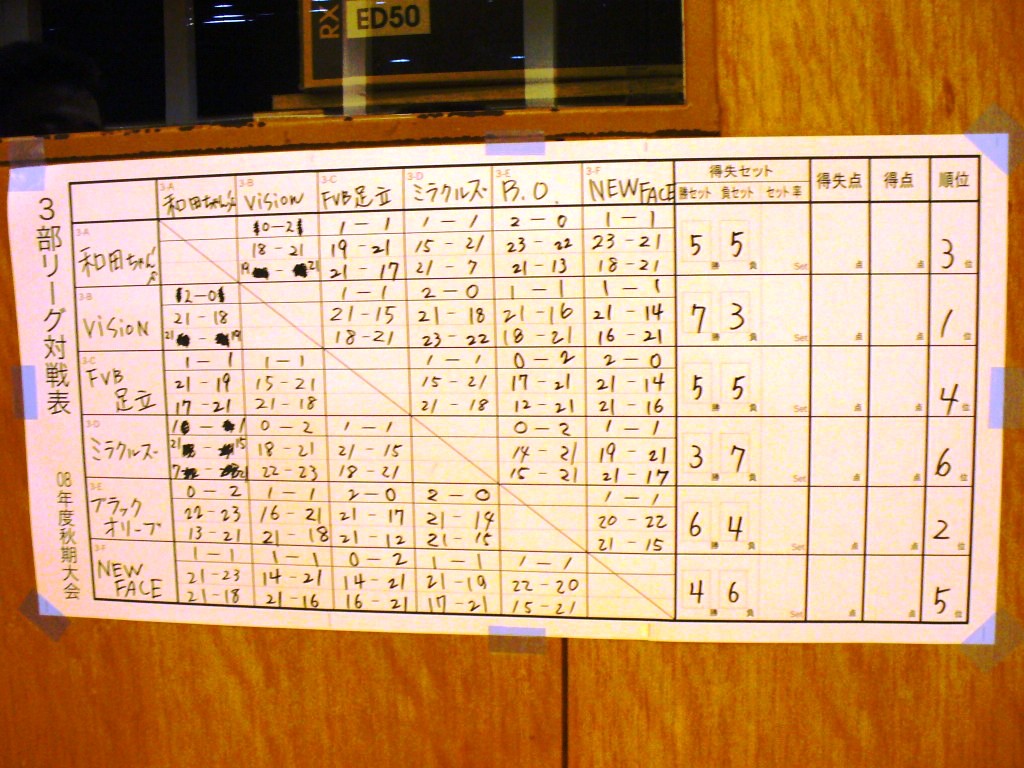 RX ED50
3部リーグ対戦表
08年度秋期大会
3-A 3-B 3-C 3-D 3-E 3-F 得失セット 得失点 得点 順位
和田ちゃんず VISION FVB足立 ミラクルズ B.O. NEW FACE 勝セット 負セット セット率
3-A 0-2 1-1 1-1 2-0 1-1
和田ちゃんず 18-21 19-21 15-21 23-22 23-21 5勝 5負 Set 点 点 3位
19 - 21 21-17 21-7 21-13 18-21
3-B 2-0 1-1 2-0 1-1 1-1
VISION 21-18 21-15 21-18 21-16 21-14 7勝 3負 Set 点 点 1位
21 - 19 18-21 23-22 18-21 16-21
3-C 1-1 1-1 1-1 0-2 2-0
FVB 21-19 15-21 15-21 17-21 21-14 5勝 5負 Set 点 点 4位
足立 17-21 21-18 21-18 12-21 21-16
3-D 1 - 1 0-2 1-1 0-2 1-1
ミラクルズ 21 - 15 18-21 21-15 14-21 19-21 3勝 7負 Set 点 点 6位
7 - 21 22-23 18-21 15-21 21-17
3-E 0-2 1-1 2-0 2-0 1-1
ブラック 22-23 16-21 21-17 21-14 20-22 6勝 4負 Set 点 点 2位
オリーブ 13-21 21-18 21-12 21-15 21-15
3-F 1-1 1-1 0-2 1-1 1-1
NEW 21-23 14-21 14-21 21-19 22-20 4勝 6負 Set 点 点 5位
FACE 21-18 21-16 16-21 17-21 15-21